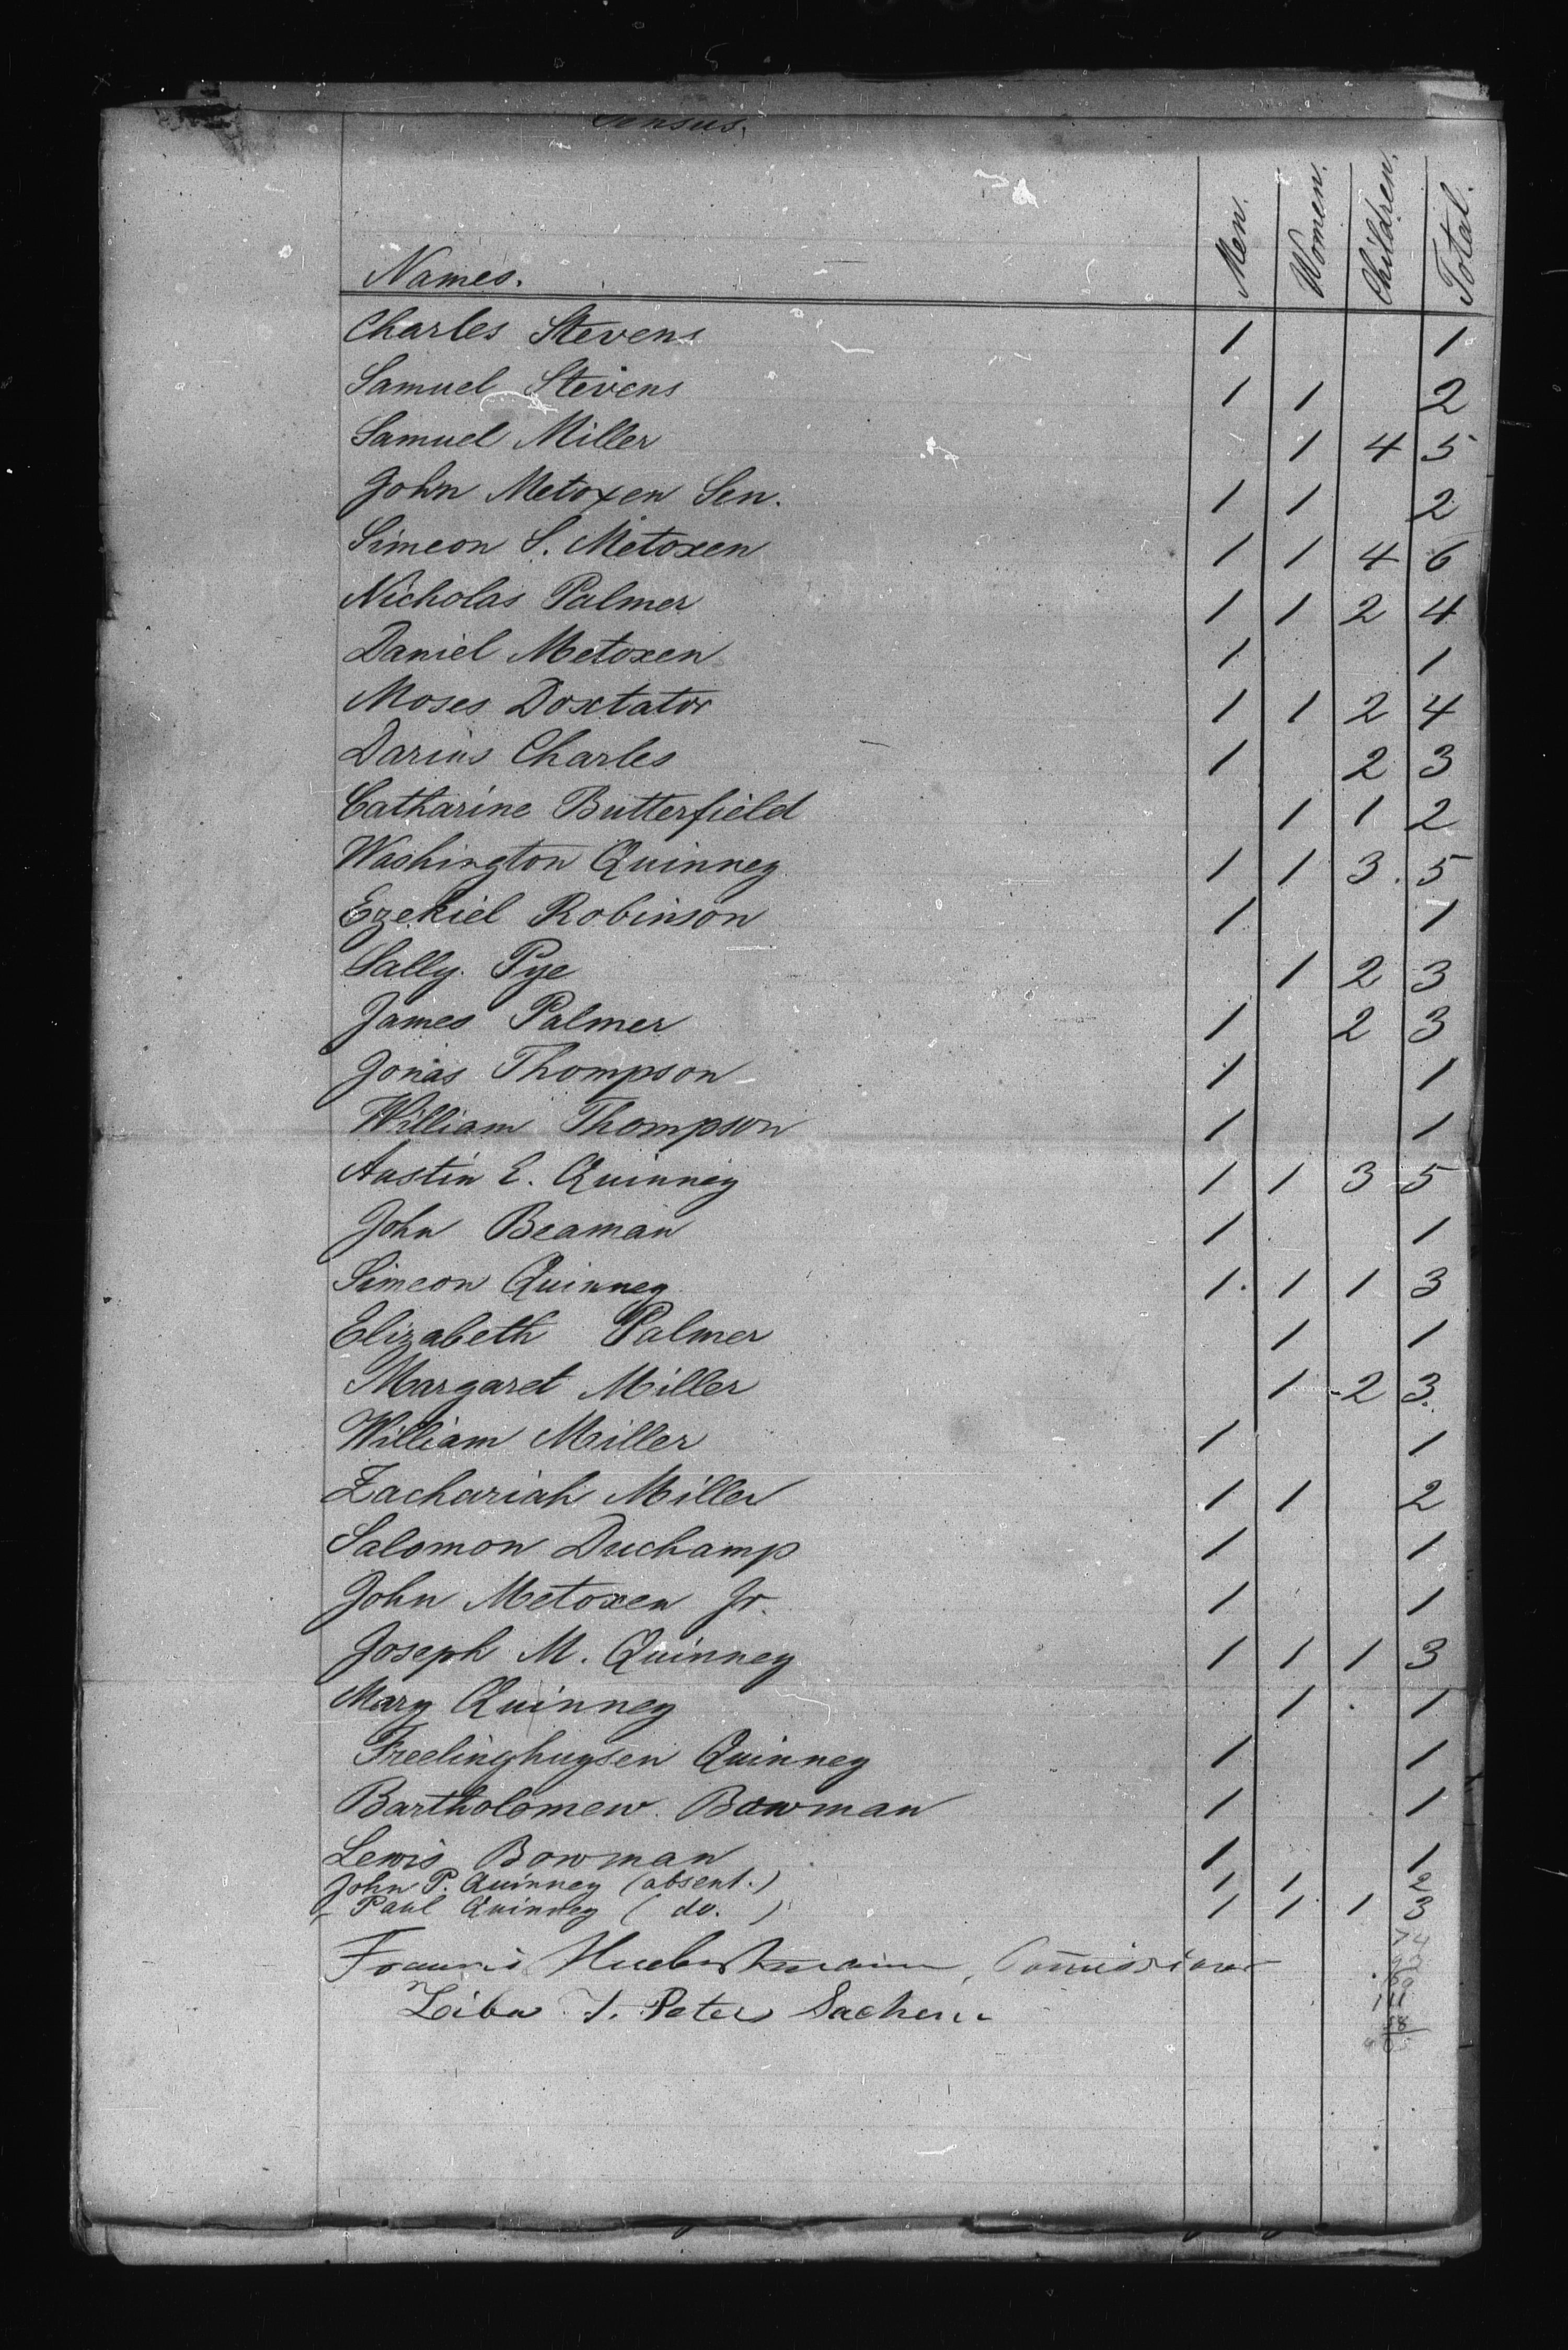 Census.
Names. Men. Women. Children. Total.
Charles Stevens 1 1
Samuel Stevens 1 1 2
Samuel Miller 1 4 5
John Metoxen Sen. 1 1 2
Simeon S. Metoxen 1 1 4 6
Nicholas Palmer 1 1 2 4
Daniel Metoxen 1 1
Moses Doxtator 1 1 2 4
Darius Charles 1 2 3
Catharine Butterfield 1 1 2
Washington Quinney 1 1 3 5
Ezekiel Robinson 1 1
Sally Pye 1 2 3
James Palmer 1 2 3
Jonas Thompson 1 1
William Thompson 1 1
Austin E. Quinney 1 1 3 5
John Beaman 1 1
Simeon Quinney 1 1 1 3
Elizabeth Palmer 1 1
Margaret Miller 1 2 3
William Miller 1 1
Zachariah Miller 1 1 2
Salomon Duchamp 1 1
John Metoxen Jr. 1 1
Joseph M. Quinney 1 1 1 3
Mary Quinney 1 1
Freelinghuysen Quinney 1 1
Bartholomew Bowman 1 1
Lewis Bowman 1 1
John P. Quinney (absent.) 1 1 2
Paul Quinney (do.) 1 1 1 3
74
Francis Huebschmann, Comissioner
Ziba T. Peters Sachem